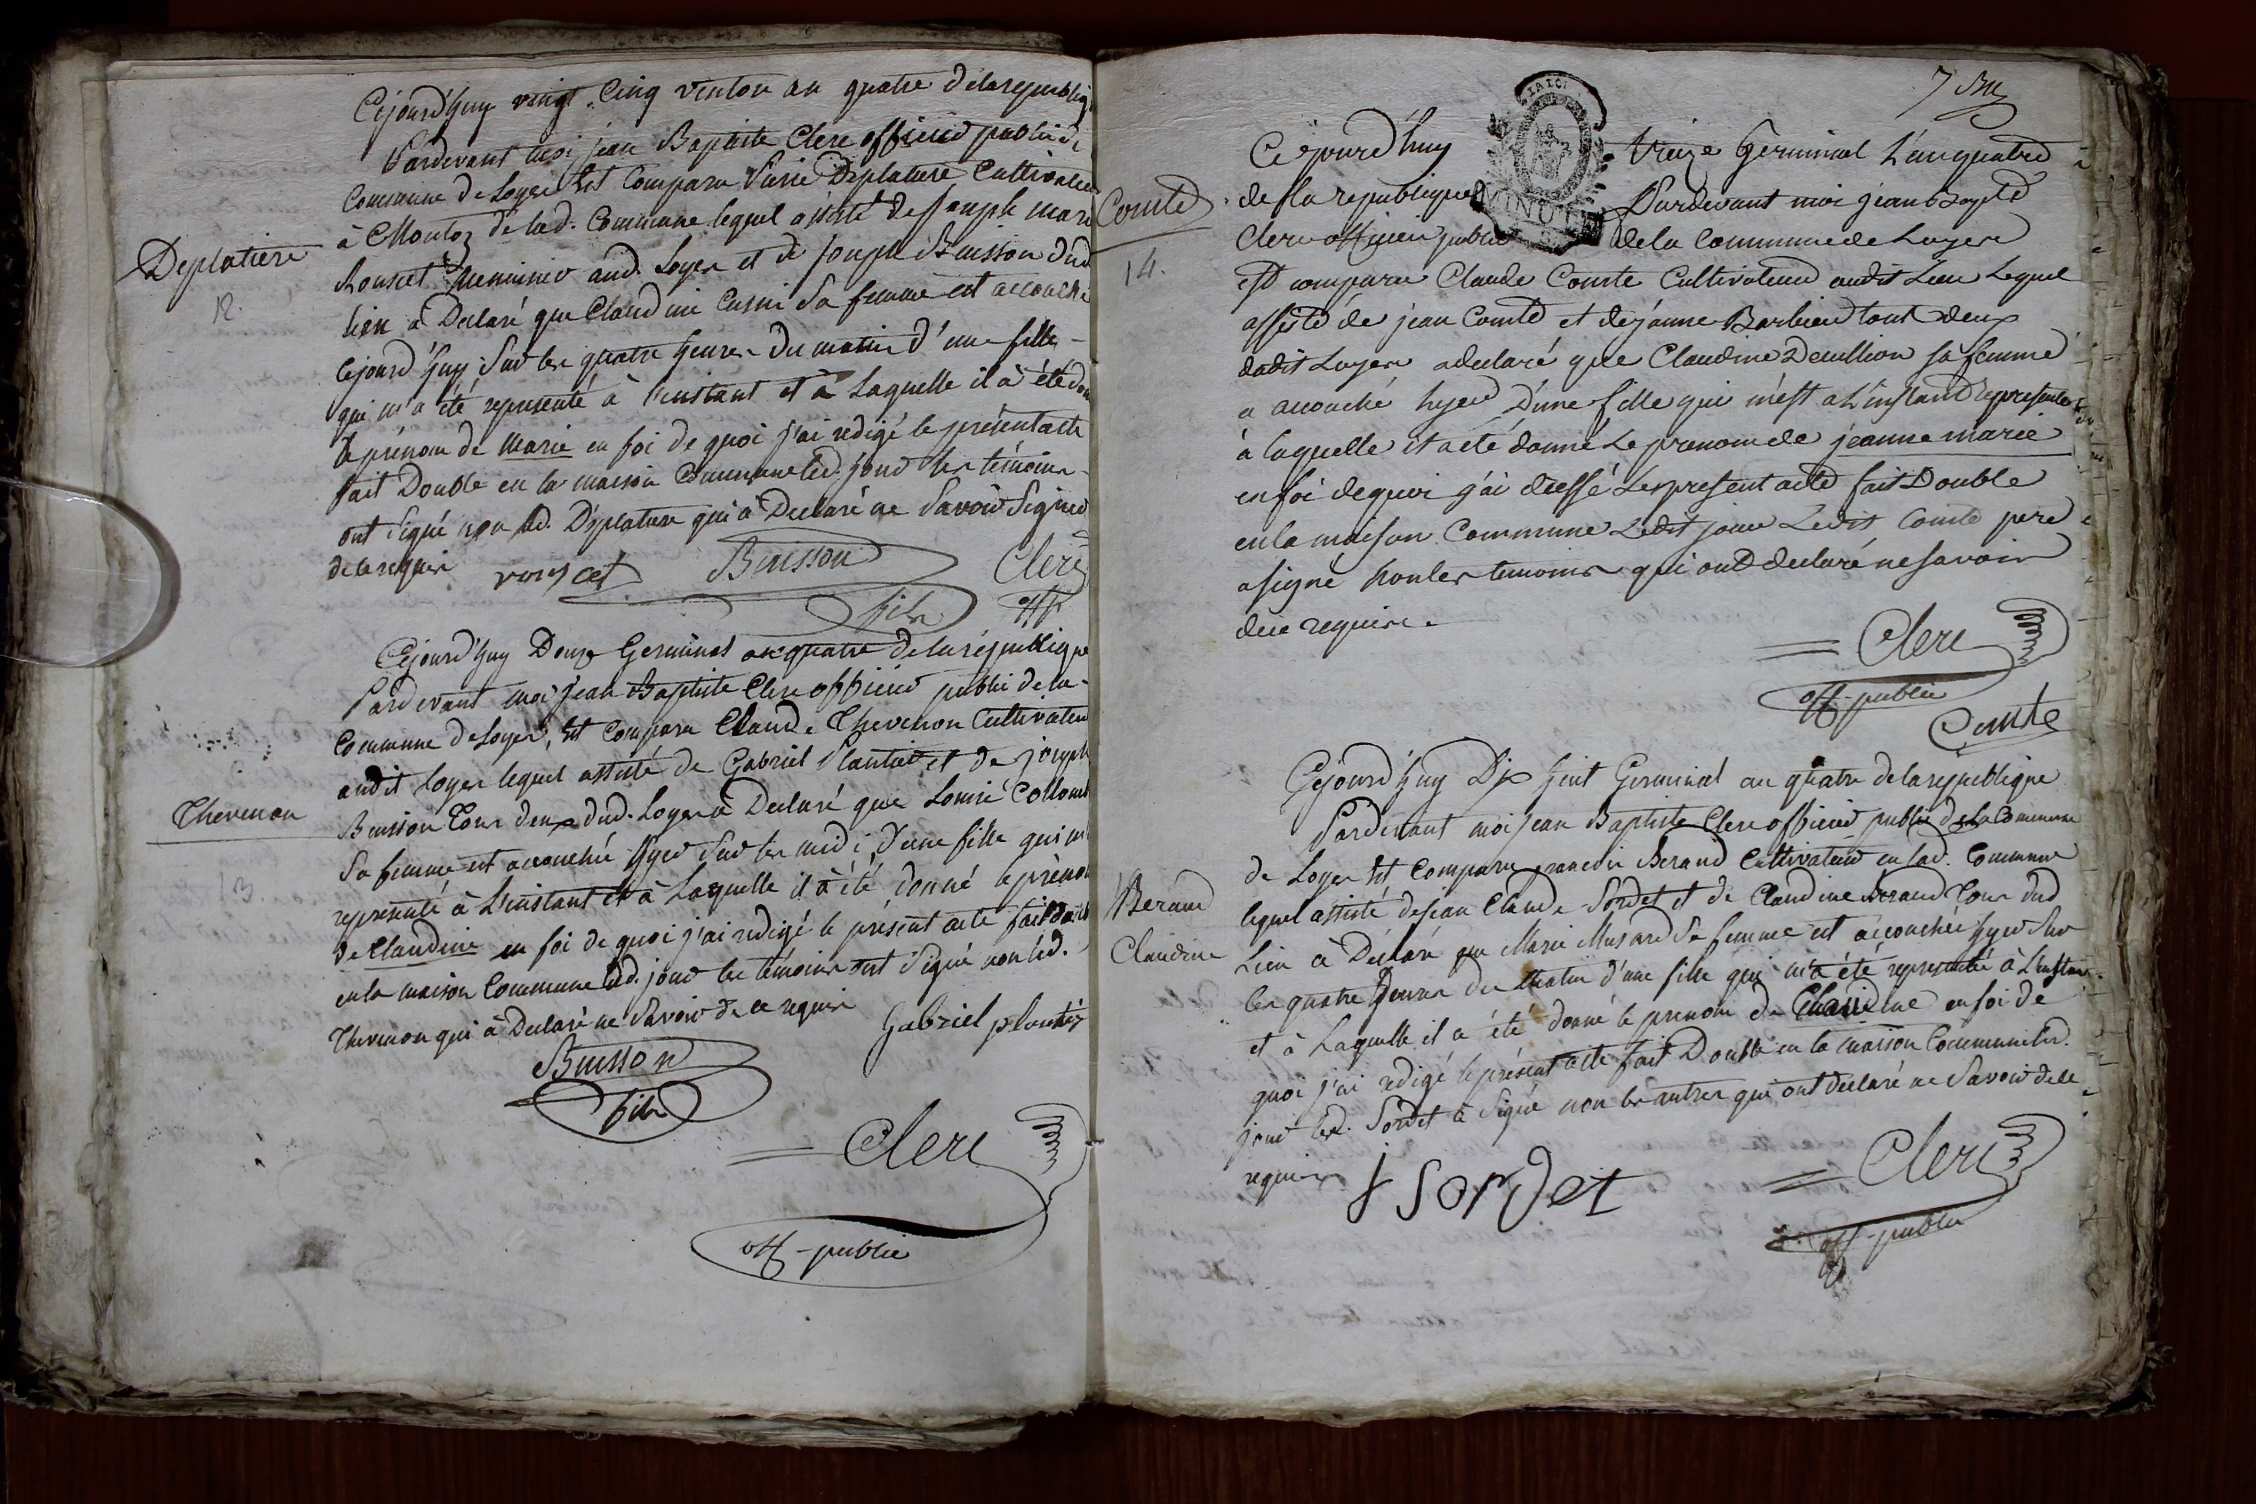 Cejourd'huy vingt-Cinq ventose an quatre de la republiq
Pardevant moi jean Baptiste Clerc officier public de
Commune de Loyes Est Comparu Deplatiere Cultivateu
à Molloz de lad. Commune lequel assisté de Joseph marie
Rousset Menuisier aud. Loyes et de Joseph Buisson dud
lieu à Declaré que Claudine Cusin Sa femme est accouché
Cejourd'huy Sur les quatre heures Du matin d'une fille
qui m'a été representé à l'instant et à Laquelle il à été don
le prénom de Marie en foi de quoi j'ai redigé le présent acte
fait Double en la maison Commune led. jour les témoins
ont signé non led. Deplatiere qui à Declaré ne Savoir Signer
de ce requis
Deplatiere
12.
rousset Buisson Clerc
fils off
Cejourd'huy Douze Germinal an quatre de la république
Pardevant moi jean Baptiste Clerc officier public de la
Commune de Loyes, Est Comparu Claude Thevenon Cultivateur
audit Loyes lequel assisté de Gabriel Plantier et de joseph
Buisson Tous deux dud. Loyes à Declaré que Louise Collomb
Sa femme est accouchée hyer Sur les midi, D'une fille qui m
representé à L'instant et à Laquelle il à été donné le prénom
De Claudine en foi de quoi j'ai redigé le présent acte fait double
en la maison Commune led. jour les témoins ont Signé non led.
Thevenon qui à Declaré ne Savoir de ce requis
Thevenon
13.
Gabriel plantier
Buisson
fils
Clerc
off-public
7
Cejourd'huy treize Germinal L'an quatre
de la republique Pardevant moi jean baptite
MINUTE
Clerc officier public de la Commune de Loyes
est comparu Claude Comte Cultivateur audit Lieu Lequel
assisté de jean Comte et de jeanne Barbier tout deux
dudit Loyes a declaré que Claudine Decullion sa femme
a accouché hyer D'une fille qui m'est a L'instant representé
à laquelle il a eté donné Le prenom de jeanne marie
en foi de quoi j'ai dressé Le present acte fait Double
en la maison Commune Ledit jour Ledit Comte pere
a signé non les temoins qui ont declaré ne savoir
de ce requis.
Comte
14.
Clerc
off-public
Comte
Cejourd'huy Dix huit Germinal an quatre de la république
Pardevant moi Jean Baptiste Clerc officier public de la Commune
de Loyes Est Comparu francois Beraud Cultivateur en lad. Commune
lequel assisté de Jean Claude Sordet et de Claudine Beraud Tous dud
Lieu à Déclaré que Marie Musard Sa femme est accouchée hyer Sur
les quatre heures du Matin d'une fille qui m'a été representée à L'instan
et à Laquelle il a été donné le prenom de Claudine en foi de
quoi j'ai redigé le présent acte fait Double en la maison Commune led.
jour led. Sordet à Signé non les autres qui ont declaré ne Savoir de ce
requis
Beraud
Claudine
j Sordet
Clerc
off-public